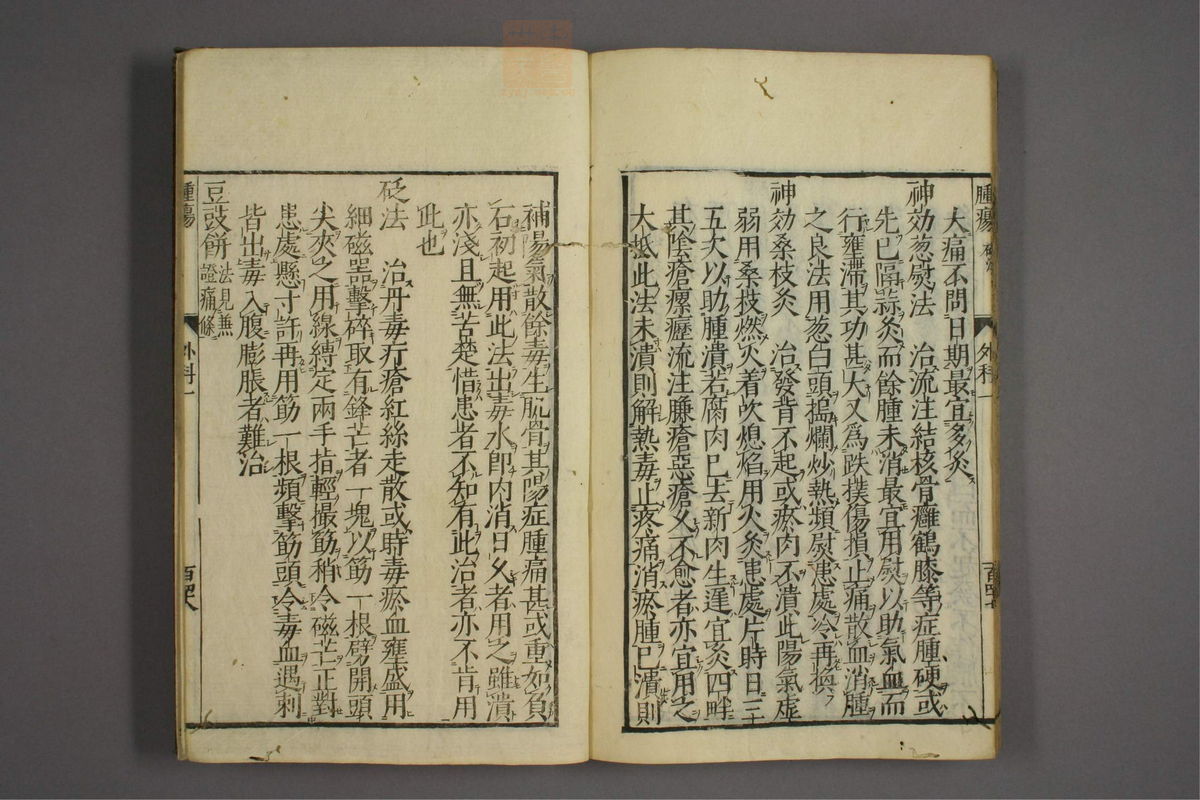 腫瘍
外科一
大痛不問日期最宜多灸
神効葱熨法　治流注結核骨癰鶴膝等症腫硬或
先已隔蒜灸而餘腫未消最宜用熨以助氣血而
行壅滯其功甚大又為跌撲傷損止痛散血消腫
之良法用葱白頭搗爛炒熱頻熨患處冷再換
神効桑枝灸　治發背不起或瘀肉不潰此陽氣虛
弱用桑枝燃火着吹熄焰用火灸患處片時日三
五次以助腫潰若腐肉已去新肉生遲宜灸四畔
其陰瘡瘰癧流注臁瘡惡瘡久不愈者亦宜用之
大抵此法未潰則解熱毒止疼痛消瘀腫已潰則
補陽氣散餘毒生肌骨其陽症腫痛甚或重如負
石初起用此法出毒水即內消日久者用之雖潰
亦淺且無苦楚惜患者不知有此治者亦不肯用
此也
砭法　治丹毒疔瘡紅絲走散或時毒瘀血壅盛用
細磁器擊碎取有鋒芒者一塊以筯一根劈開頭
尖夾之用線縛定兩手指輕撮筯稍令磁芒正對
患處懸寸許再用筯一根頻擊筯頭令毒血遇刺
皆出毒入腹膨脹者難治
豆豉餅　法見無
證痛條
腫瘍
外科一
百四八